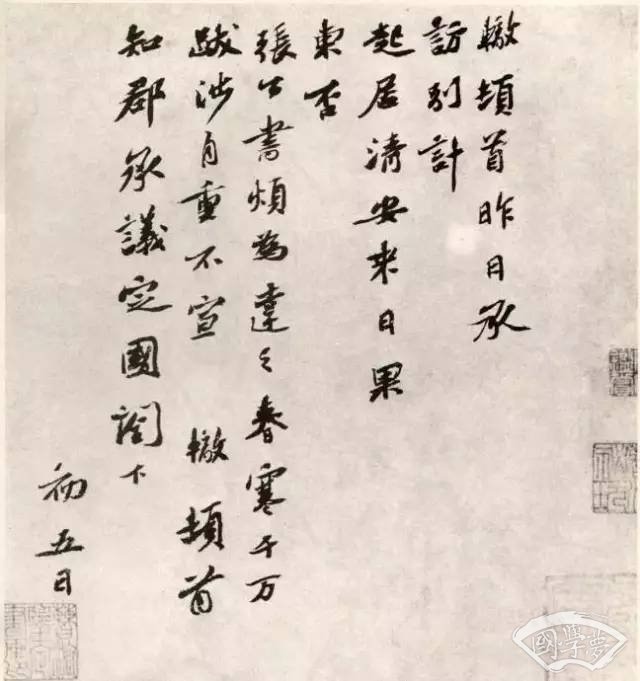 轍頓首昨日承
訪別計
起居清安來日果
東否
張公書煩為達之春寒千万
跋涉自重不宣 轍頓首
知郡承議定國閣下
初五日
國學夢